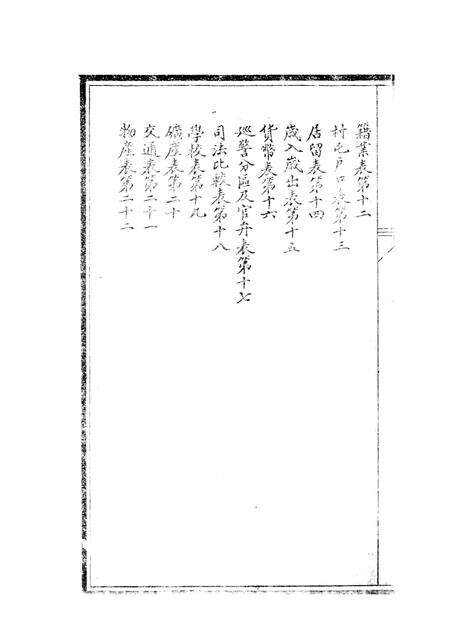 籍業表第十二
村屯戶口表第十三
居留表第十四
歲入歲出表第十五
貨幣表第十六
巡警分區及官弁表第十七
司法比較表第十八
學校表第十九
礦產表第二十
交通表第二十一
物產表第二十二